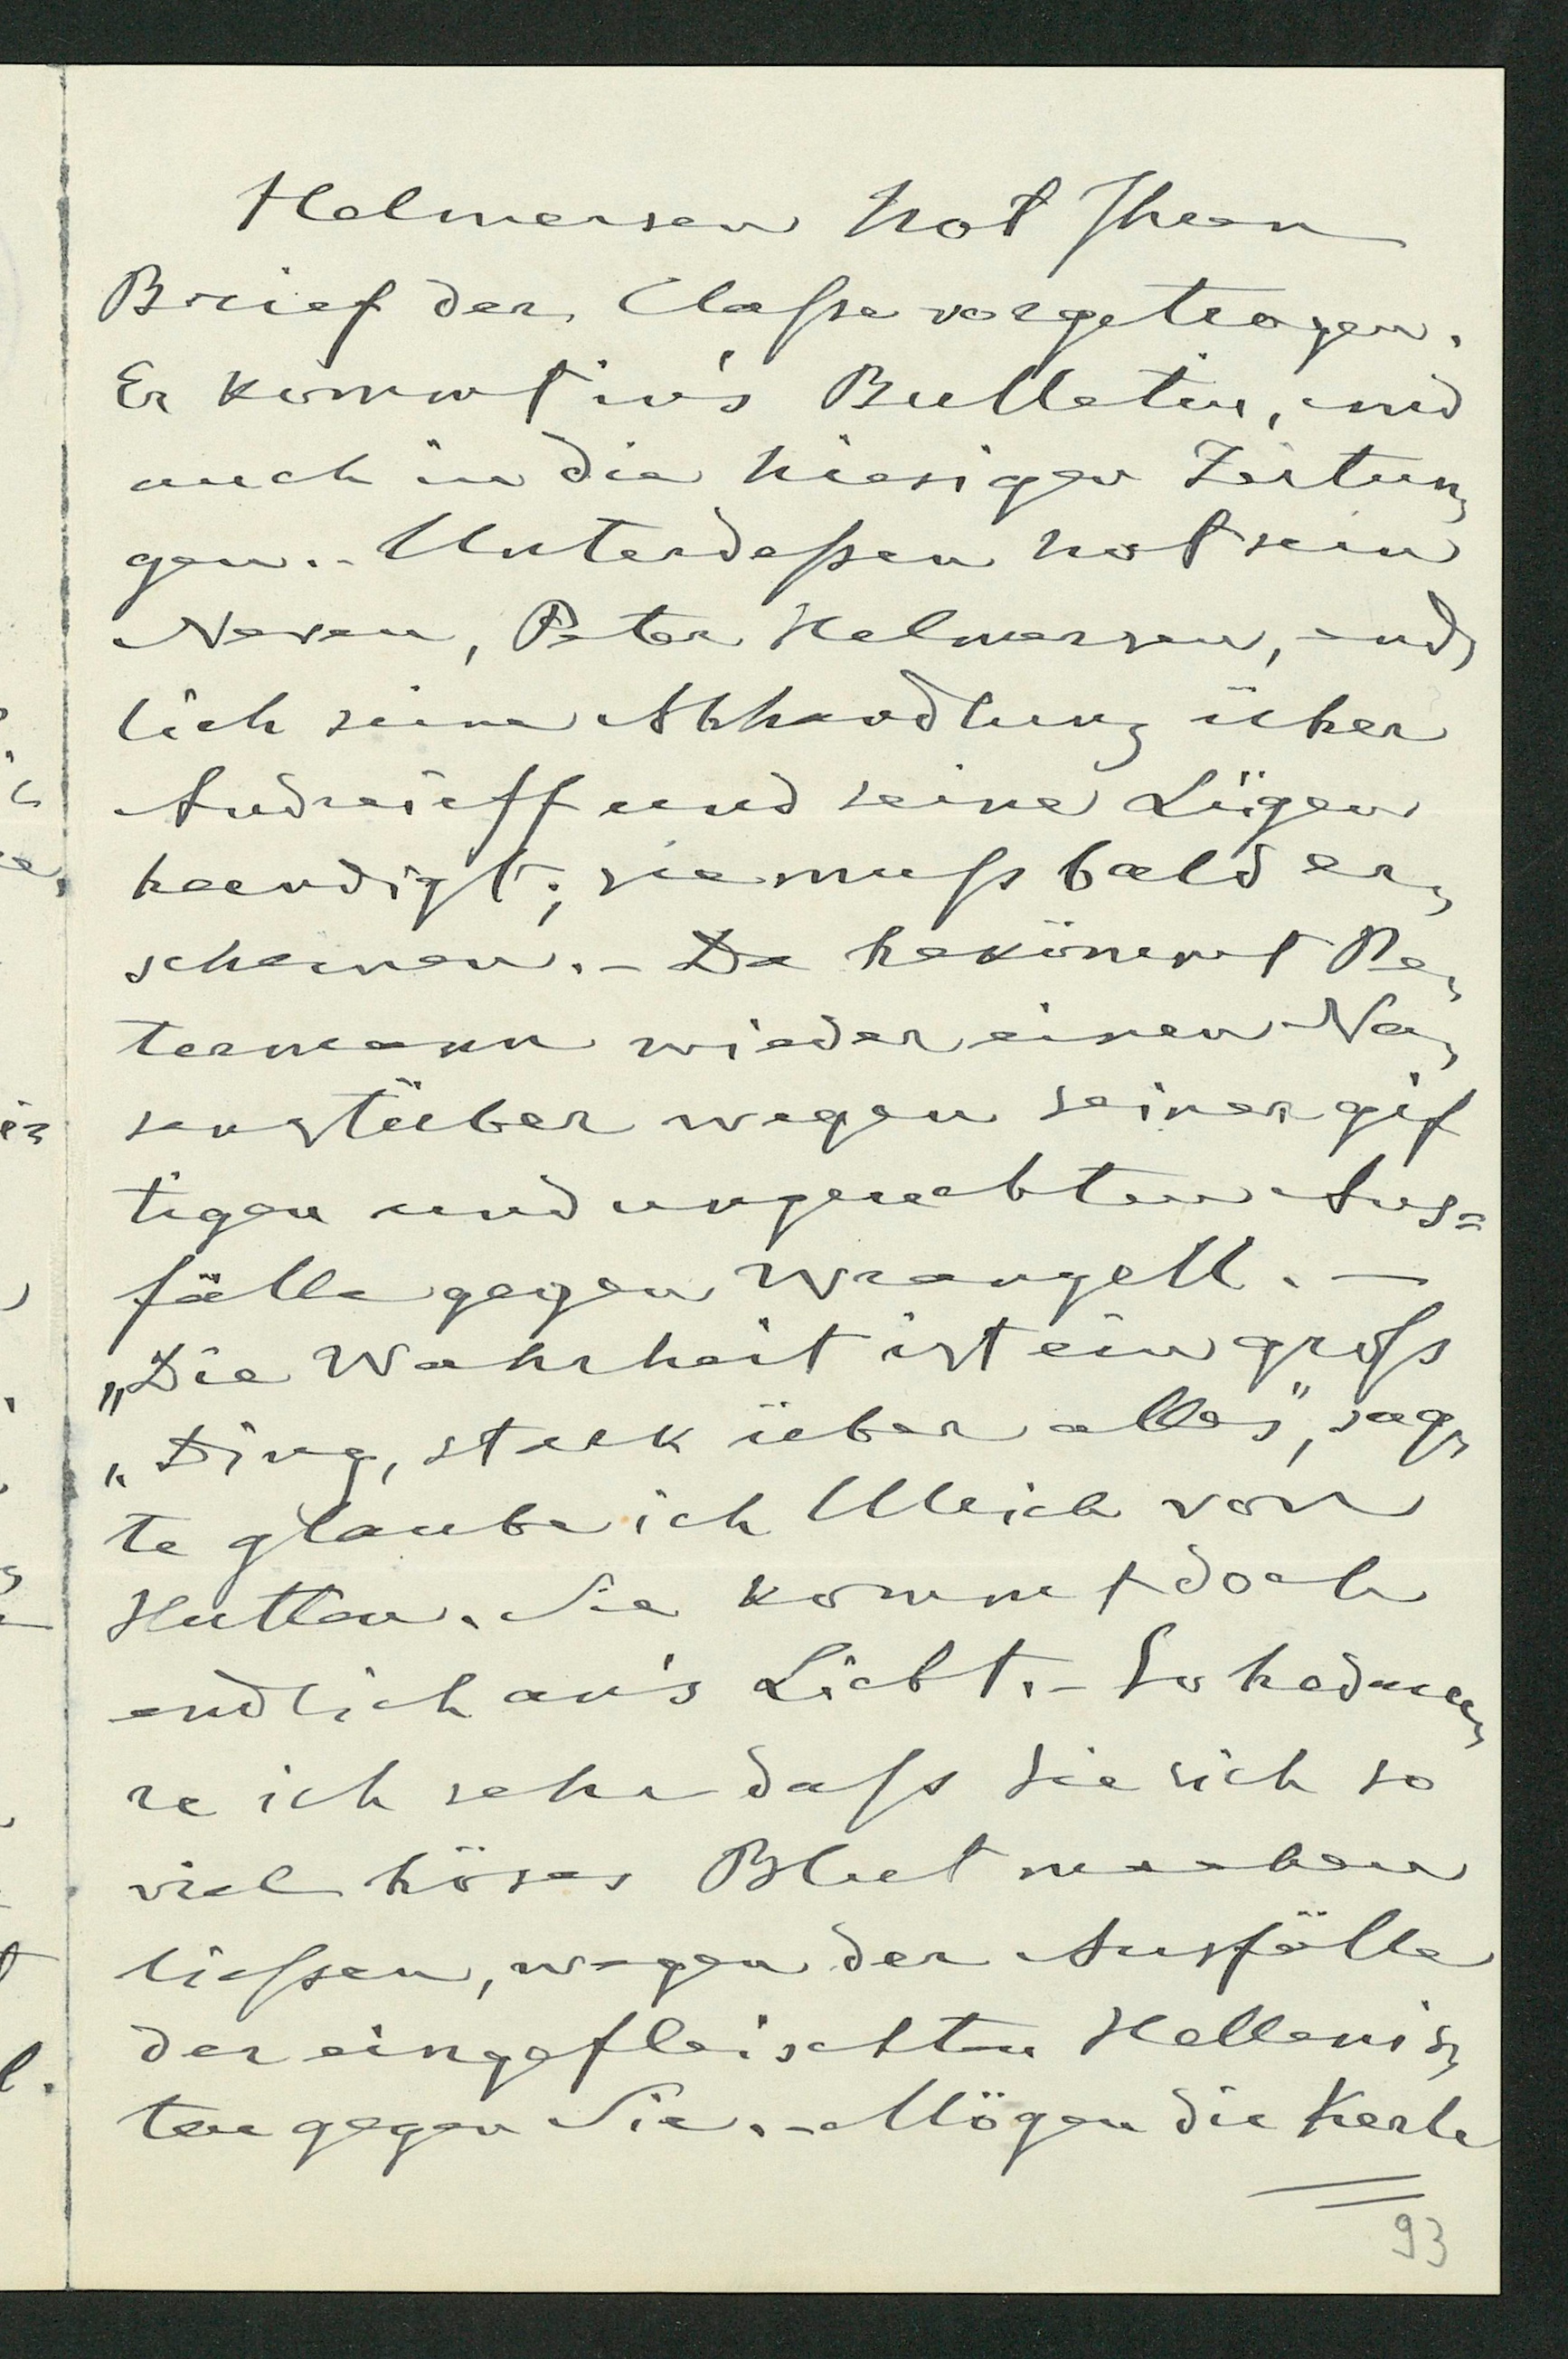 Helmersen hat Ihren
Brief der Claſse vorgetragen.
Er kommt in's Bulletin, und
auch in die hiesigen Zeitun-
gen.- Unterdeſsen hat sein
Neveu, Peter Helmersen, end-
lich seine Abhandlung über
Andreieff und seine Lügen
beendigt; sie muſs bald er-
scheinen.- Da bekömmt Pe-
termann wieder einen Na-
senstüber wegen seiner gif
tigen und ungerechten Aus=
fälle gegen Wrangell. —
„Die Wahrheit ist ein groſs
„Ding, stark über alles", sag-
te glaube ich Ulrich von
Hutten. Sie kommt doch
endlich an's Licht.- So bedau-
re ich sehr daſs Sie sich so
viel böses Blut machen
lieſsen, wegen der Ausfälle
der eingefleischten Hellenis-
ten gegen Sie.- Mögen die Kerle
93